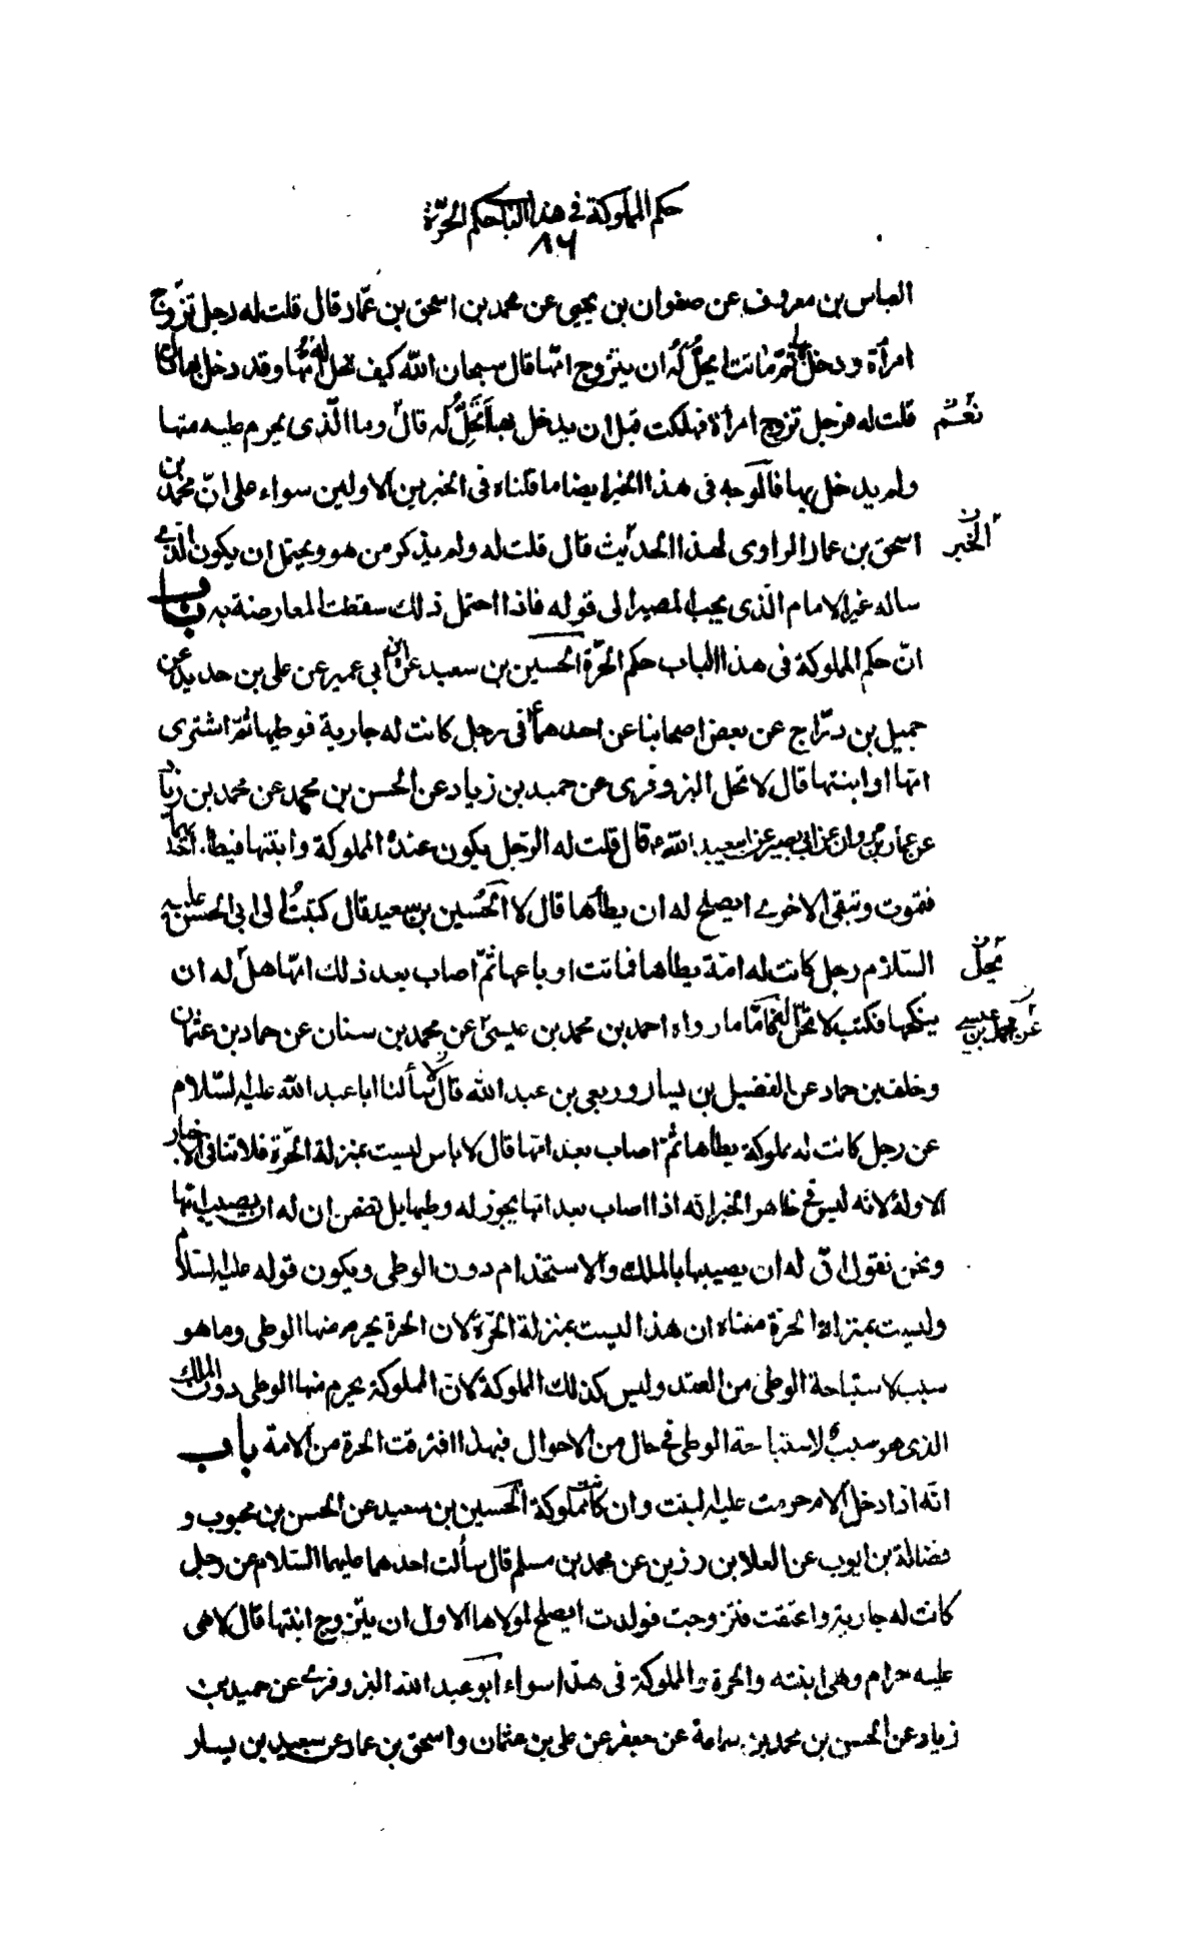 حكم المملوكة فى هذا الباب حكم الحرّة
٨٦
العباس بن معروف عن صفوان بن يحيى عن محمد بن اسحق بن عمّار قال قلت له رجل تزوّج
امرأة ودخل بها ثمّ ماتت ايحلّ له ان يتزوج امّها قال سبحان الله كيف تحل له امّها وقد دخل بها قال
قلت له فرجل تزوج امرأة فهلكت قبل ان يدخل بها تحلّ له امها قال وما الّذى يحرم عليه منها
نعم
ولم يدخل بها فالوجه فى هذا الخبر ايضا ما قلناه فى الخبرين الاولين سواء على انّ محمد بن
اسحق بن عمار الراوى لهذا الحديث قال قلت له ولم يذكر من هو ويحتمل ان يكون الّذى
الخبر
ساله غير الامام الّذى يجب المصير الى قوله فاذا احتمل ذلك سقطت المعارضة به باب
انّ حكم المملوكة فى هذا الباب حكم الحرّة الحسين بن سعيد عن ابن ابى عمير عن على بن حديد عن
جميل بن درّاج عن بعض اصحابنا عن احدهما فى رجل كانت له جارية فوطيها ثمّ اشترى
امّها او ابنتها قال لا تحل البزوفرى عن حميد بن زياد عن الحسن بن محمد عن محمد بن زياد
عن عمار بن مروان عن ابى بصير عن ابى عبد الله ع قال قلت له الرّجل يكون عنده المملوكة وابنتها فيطا احديهما
فتموت وتبقى الاخرى ايصلح له ان يطأها قال لا الحسين بن سعيد قال كتبت الى ابى الحسن عليه
السّلام رجل كانت له امة يطاها فماتت او باعها ثمّ اصاب بعد ذلك امّها هل له ان
يحلّ
ينكحها فكتب لا تحلّ له فامّا ما رواه احمد بن محمد بن عيسى عن محمد بن سنان عن حماد بن عثمان
عن محمد بن عيسى
وخلف بن حماد عن الفضيل بن يسار وربعى بن عبد الله قالا سألنا ابا عبد الله عليه السّلام
عن رجل كانت له مملوكة يطاها ثمّ اصاب بعد امّها قال لا باس ليست بمنزلة الحرّة فلا تنافى الاخبار
الاولة لانه ليس فى ظاهر الخبر انه اذا اصاب بعد امها يجوز له وطيها بل تضمن ان له ان يصيب امّها
ونحن نقول انّ له ان يصيبها بالملك والاستخذام دون الوطى ويكون قوله عليه السّلام
وليست بمنزلة الحرة معناه ان هذا ليست بمنزلة الحرّة لان الحرة يحرم منها الوطى وما هو
سبب لاستباحة الوطى من العقد وليس كذلك المملوكة لان المملوكة يحرم منها الوطى دون الملك
الذى هو سبب لاستباحة الوطى فى حال من الاحوال فبهذا افترقت الحرة من الامة باب
انّه اذا دخل بالام حرمت عليه البنت وان كانت مملوكة الحسين بن سعيد عن الحسن بن محبوب و
فضالة بن ايوب عن العلا بن رزين عن محمد بن مسلم قال سألت احدهما عليهما السّلام عن رجل
كانت له جارية واعتقت فتزوجت فولدت ايصلح لمولاها الاول ان يتزوج ابنتها قال لا هى
عليه حرام وهى ابنته والحرة والمملوكة فى هذا سواء ابو عبد الله البزوفرى عن حميد بن
زياد عن الحسن بن محمد بن سماعة عن جعفر عن على بن عثمان واسحق بن عمار عن سعيد بن يسار